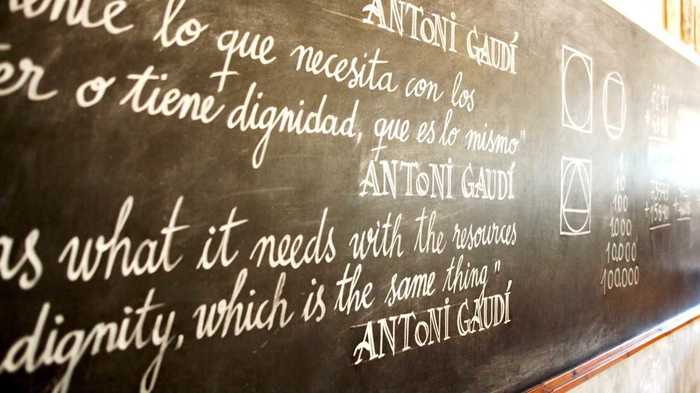 ANTONI GAUDÍ
lo que necesita con los
er o tiene dignidad, que es lo mismo"
ANTONI GAUDÍ
as what it needs with the resources
dignity, which is the same thing"
ANTONI GAUDÍ
10
100
1000
10,000
100,000